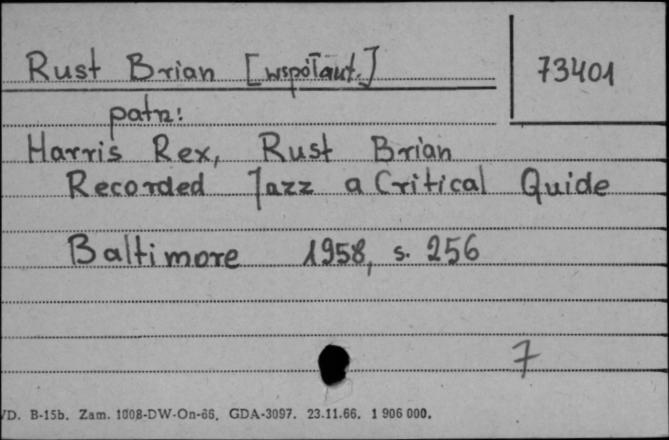 Rust Brian [współaut.]
73401
patrz:
Harris Rex, Rust Brian
Recorded Jazz a Critical Quide
Baltimore 1958, s. 256
7
D. B-15b. Zam. 1008-DW-On-66. GDA-3097. 23.11.66. 1 906 000.